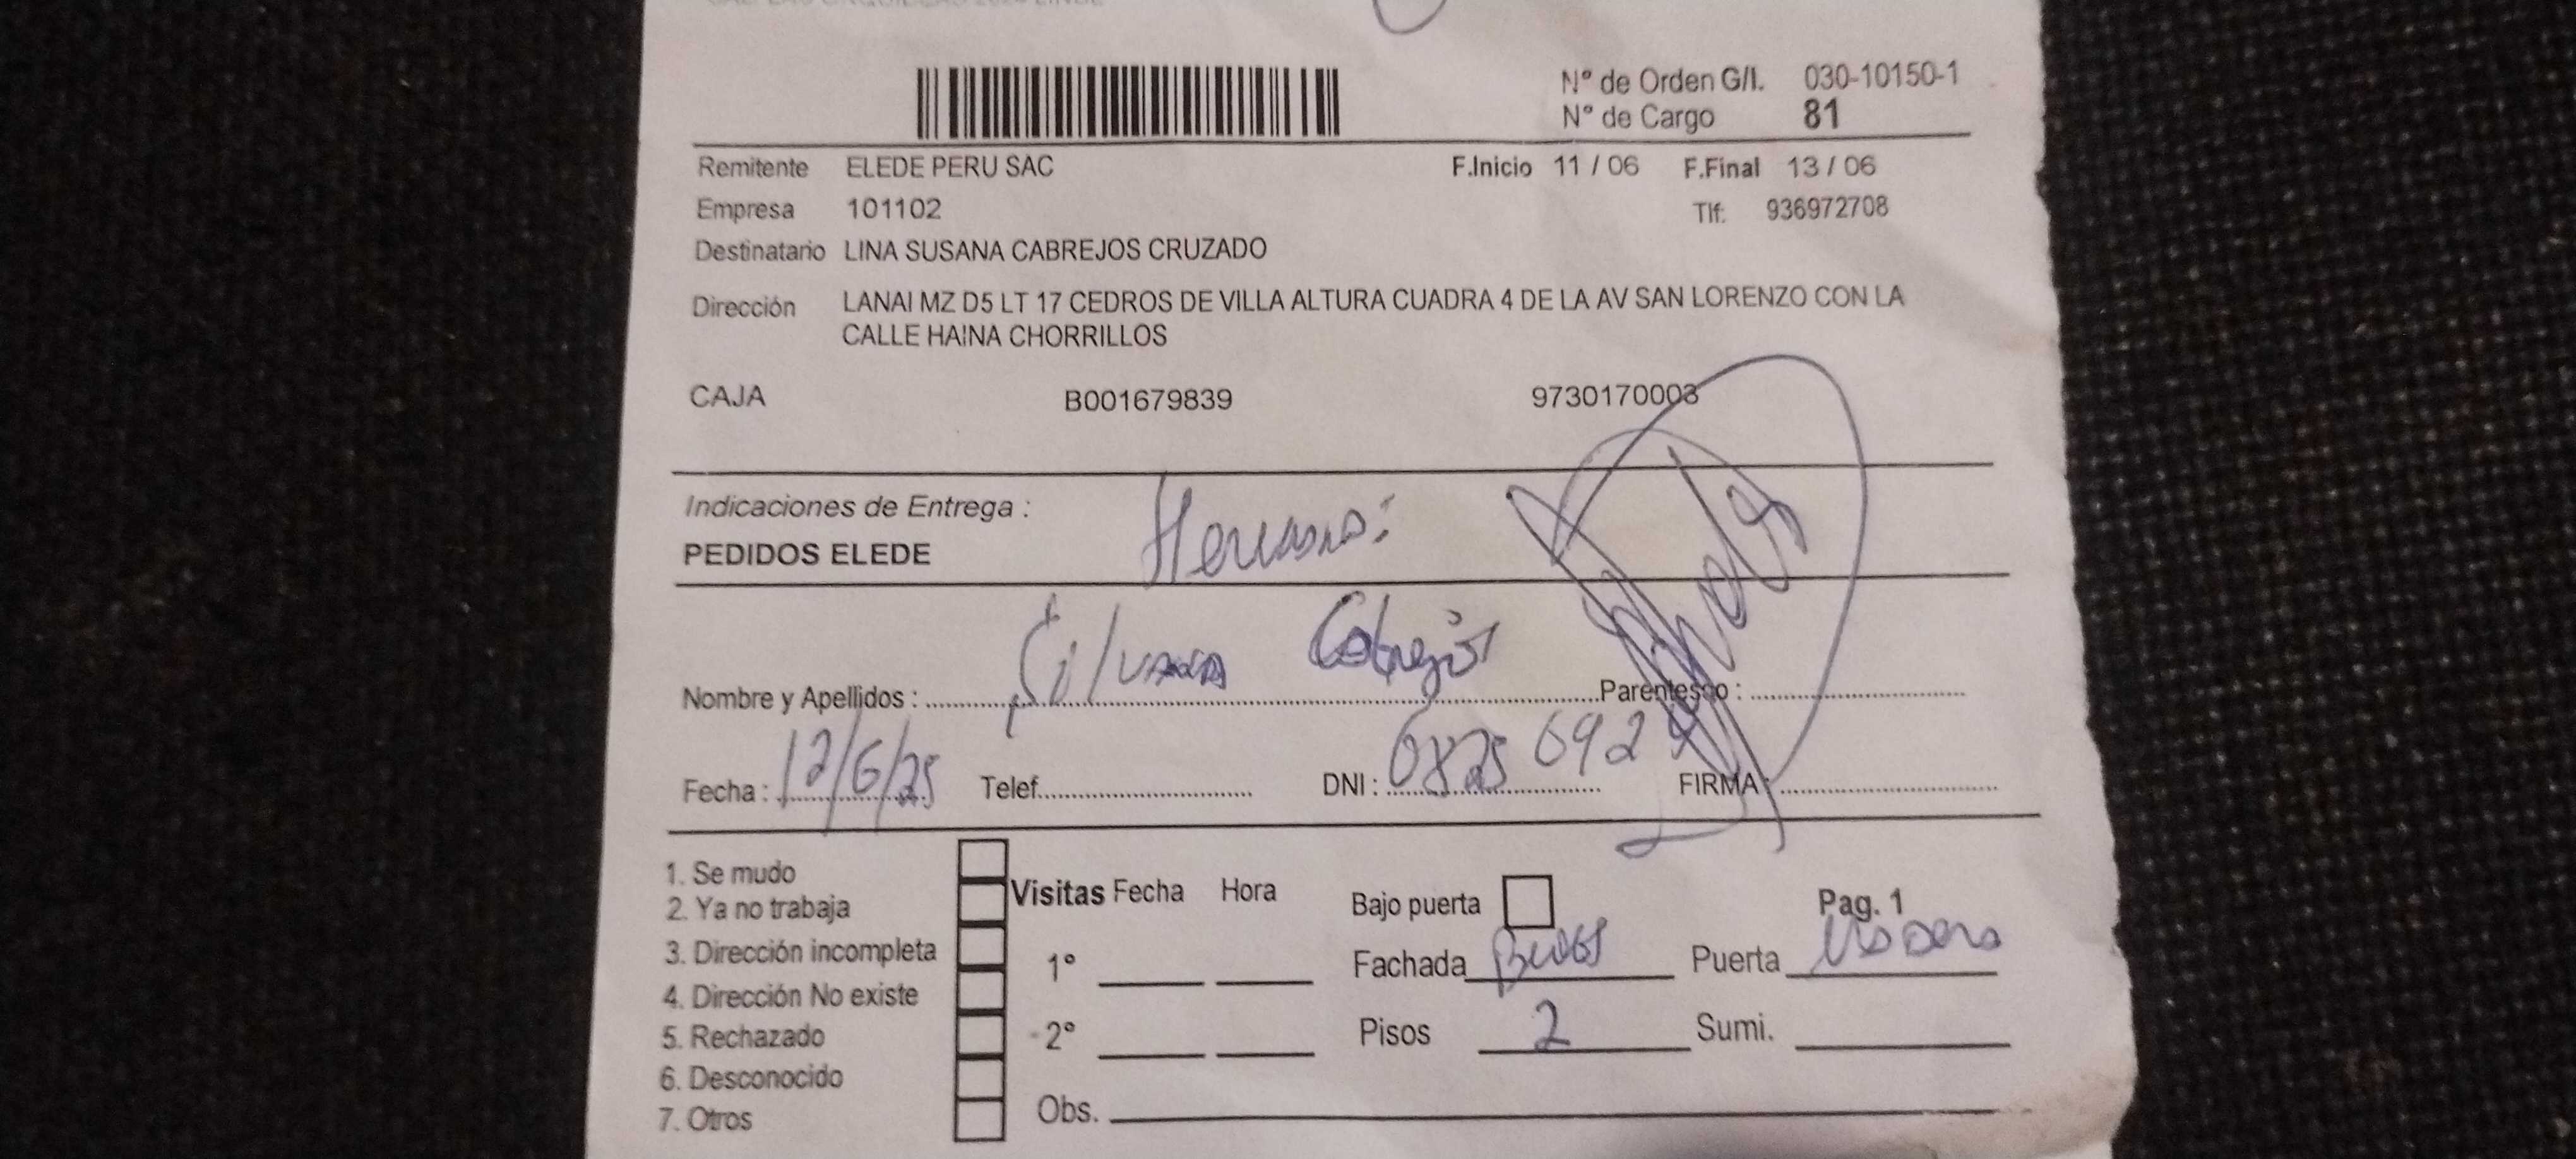 Nº de Orden G/I. 030-10150-1
Nº de Cargo 81
Remitente ELEDE PERU SAC F.Inicio 11 / 06 F.Final 13 / 06
Empresa 101102 Tlf: 936972708
Destinatario LINA SUSANA CABREJOS CRUZADO
Dirección LANAI MZ D5 LT 17 CEDROS DE VILLA ALTURA CUADRA 4 DE LA AV SAN LORENZO CON LA
CALLE HAINA CHORRILLOS
CAJA B001679839 9730170003
Indicaciones de Entrega :
PEDIDOS ELEDE
Nombre y Apellidos : Silvana Cabrejos Parentesco :
Fecha : 12/6/25 Telef. DNI : FIRMA :
1. Se mudo
2. Ya no trabaja
3. Dirección incompleta
4. Dirección No existe
5. Rechazado
6. Desconocido
7. Otros
Visitas Fecha Hora
1º
2º
Obs.
Bajo puerta Pag. 1
Fachada Puerta
Pisos 2 Sumi.